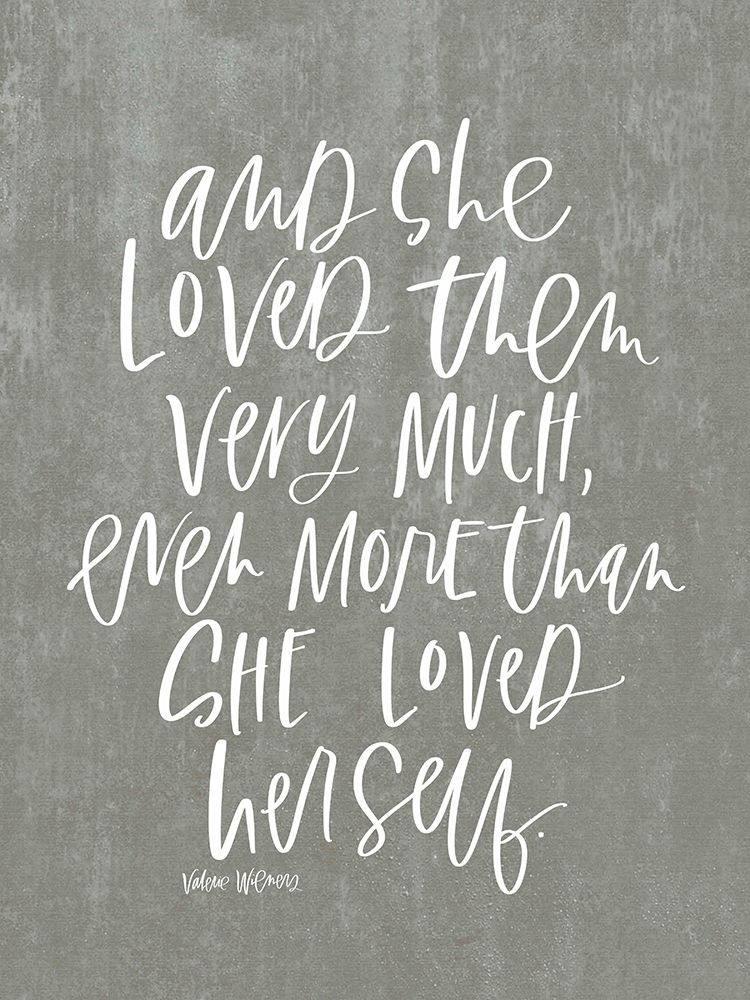 and she
Loved them
very MUCH,
even MORE than
SHE LOVED
herself.
Valerie Wieners